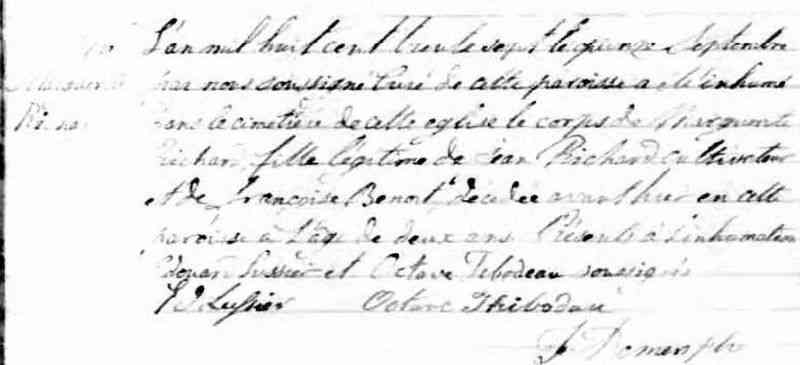 L'an mil huit cent trente sept le quinze Septembre
par nous soussigné Curé de cette paroisse a été inhumé
dans le cimetière de cette église le corps de Marguerite
Richard fille légitime de Jean Richard cultivateur
et de Françoise Benoit décédée avant hier en cette
paroisse à l'âge de deux ans Présents à l'inhumation
Edouard Lussier et Octave Tebodeau soussignés
Ed Lussier Octave Thibodau